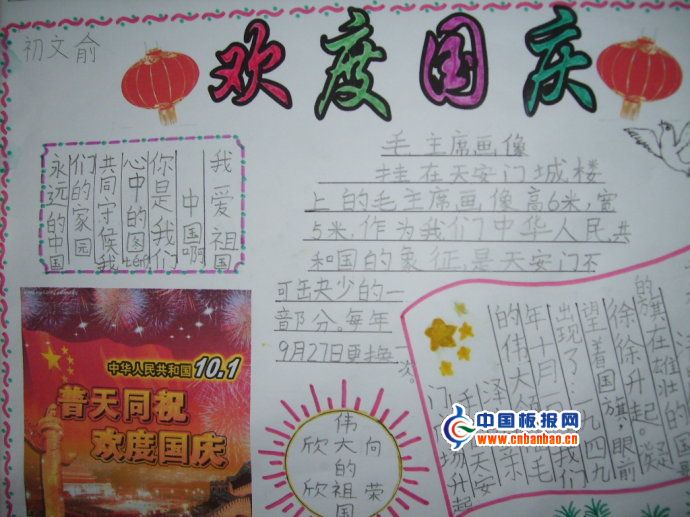 初文俞
欢度国庆
毛主席画像
挂在天安门城楼
上的毛主席画像高6米,宽
5米.作为我们中华人民共
和国的象征,是天安门不
可缺少的一
部分。每年
9月27日更换一次。
我爱祖国
中国啊
你是我们
心中的图腾
共同守候我
们的家园
永远的中国
中华人民共和国10.1
普天同祝
欢度国庆
伟
欣大向
的
欣祖荣
国
的旗在雄壮的
徐徐升起
望着国旗,眼前
出现了:一九四九
年十月
的伟大
泽
天安
门
场升起
中国板报网
www.cnbanbao.cn